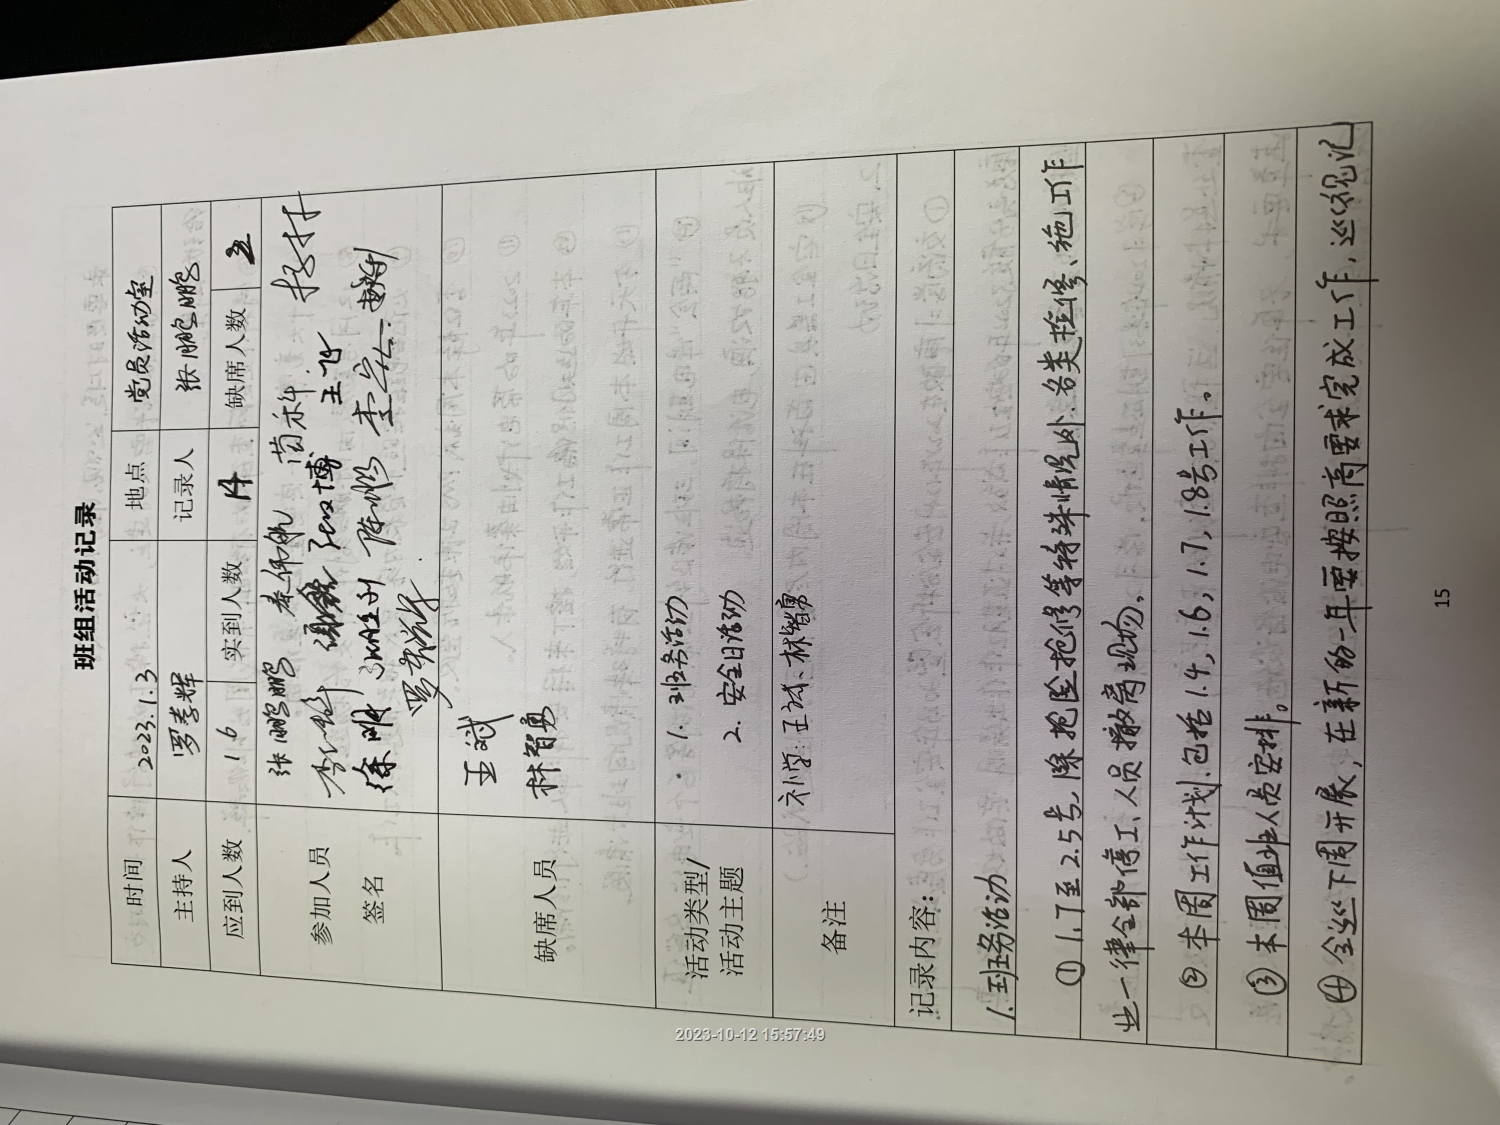 班组活动记录
时间 2023.1.3 地点 党员活动室
主持人 罗孝辉 记录人 张鹏鹏
应到人数 16 实到人数 14 缺席人数 2
参加人员
签名
张鹏鹏 秦仰航 苗科
张博 王飞
徐明 陈彬 李宏
缺席人员
王斌
林智勇
活动类型/
活动主题
1.班务活动
2.安全日活动
备注 补学:王斌、林智勇
记录内容:
1.班务活动
① 1.1至2.5号,除抢险抢修等特殊情况外,各类检修、施工作
业一律全部停工、人员撤离现场。
② 本周工作计划.包括1.4,1.6,1.7,1.8号工作。
③ 本周值班人员安排。
④ 全巡下周开展,在新的一年要按照高要求完成工作,巡视记
15
2023-10-12 15:57:49